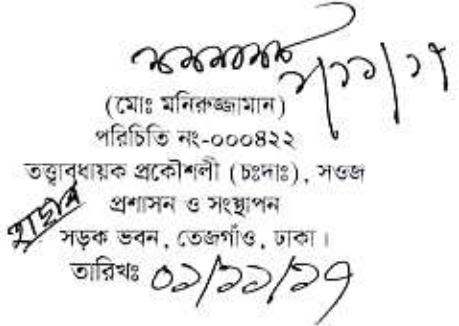 (মোঃ মনিরুজ্জামান)
পরিচিতি নং-০০০৪২২
তত্ত্বাবধায়ক প্রকৌশলী (চঃদাঃ), সওজ
প্রশাসন ও সংস্থাপন
সড়ক ভবন, তেজগাঁও, ঢাকা।
তারিখঃ ০১/১১/১৭